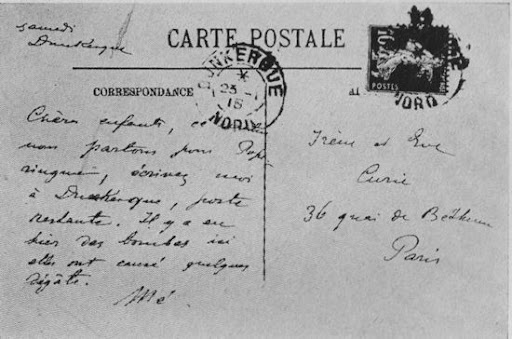 samedi
Dunkerque
CARTE POSTALE
DUNKERQUE
*
23 - 1
15
NORD
POSTES
10
NORD
CORRESPONDANCE
Chères enfants, ce
nous partons pour Pope
ringue, écrivez moi
à Dunkerque, poste
restante. Il y a eu
hier des bombes ici
elles ont causé quelques
dégâts.
Mé
Irène et Eve
Curie
36 quai de Béthune
Paris